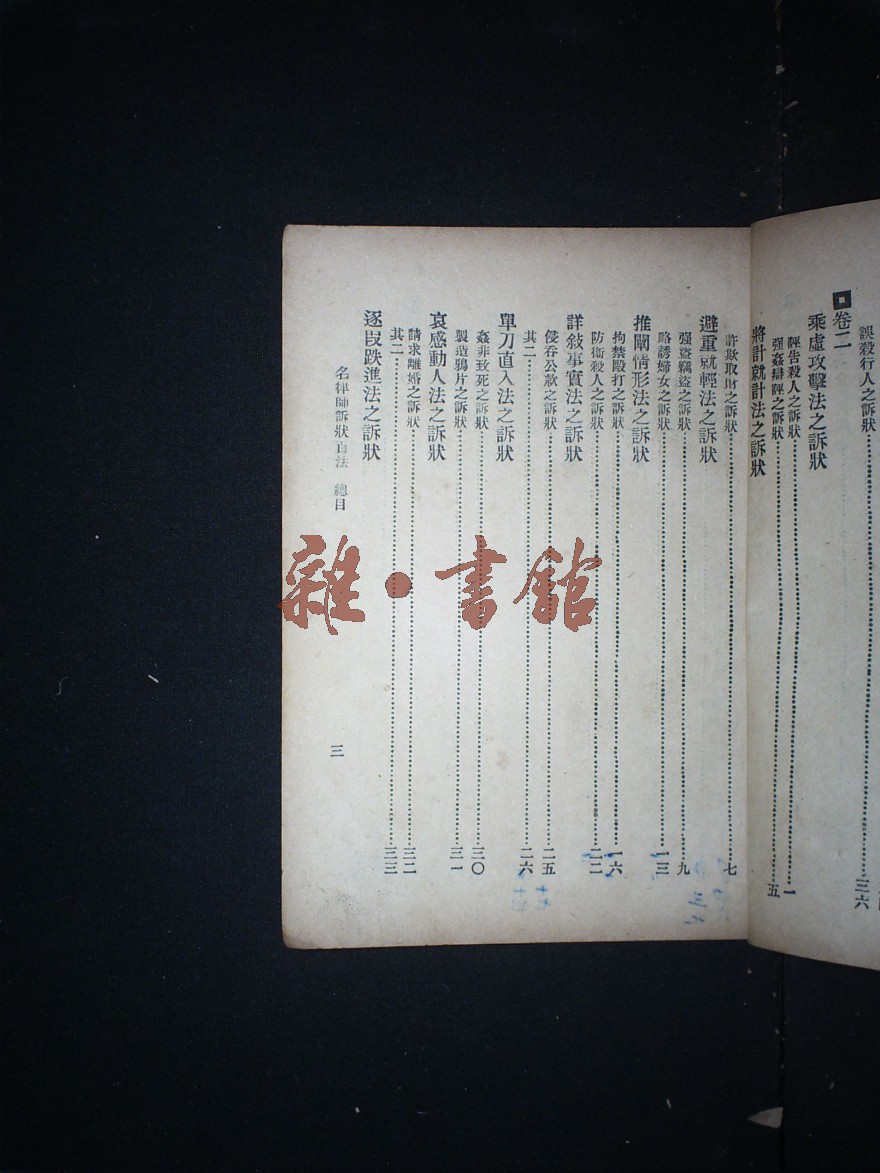 誤殺行人之訴狀……三六
卷二
乘虛攻擊法之訴狀
誣告殺人之訴狀……一
强姦辯誣之訴狀……五
將計就計法之訴狀
詐欺取財之訴狀……七
避重就輕法之訴狀
强盜竊盜之訴狀……九
略誘婦女之訴狀……一三
推闡情形法之訴狀
拘禁毆打之訴狀……一六
防衛殺人之訴狀……二二
詳敍事實法之訴狀
侵吞公款之訴狀……二五
其二……二六
單刀直入法之訴狀
姦非致死之訴狀……三〇
製造鴉片之訴狀……三一
哀感動人法之訴狀
請求離婚之訴狀……三二
其二……三三
逐段跌進法之訴狀
名律師訴狀百法 總目
三
雜·書館